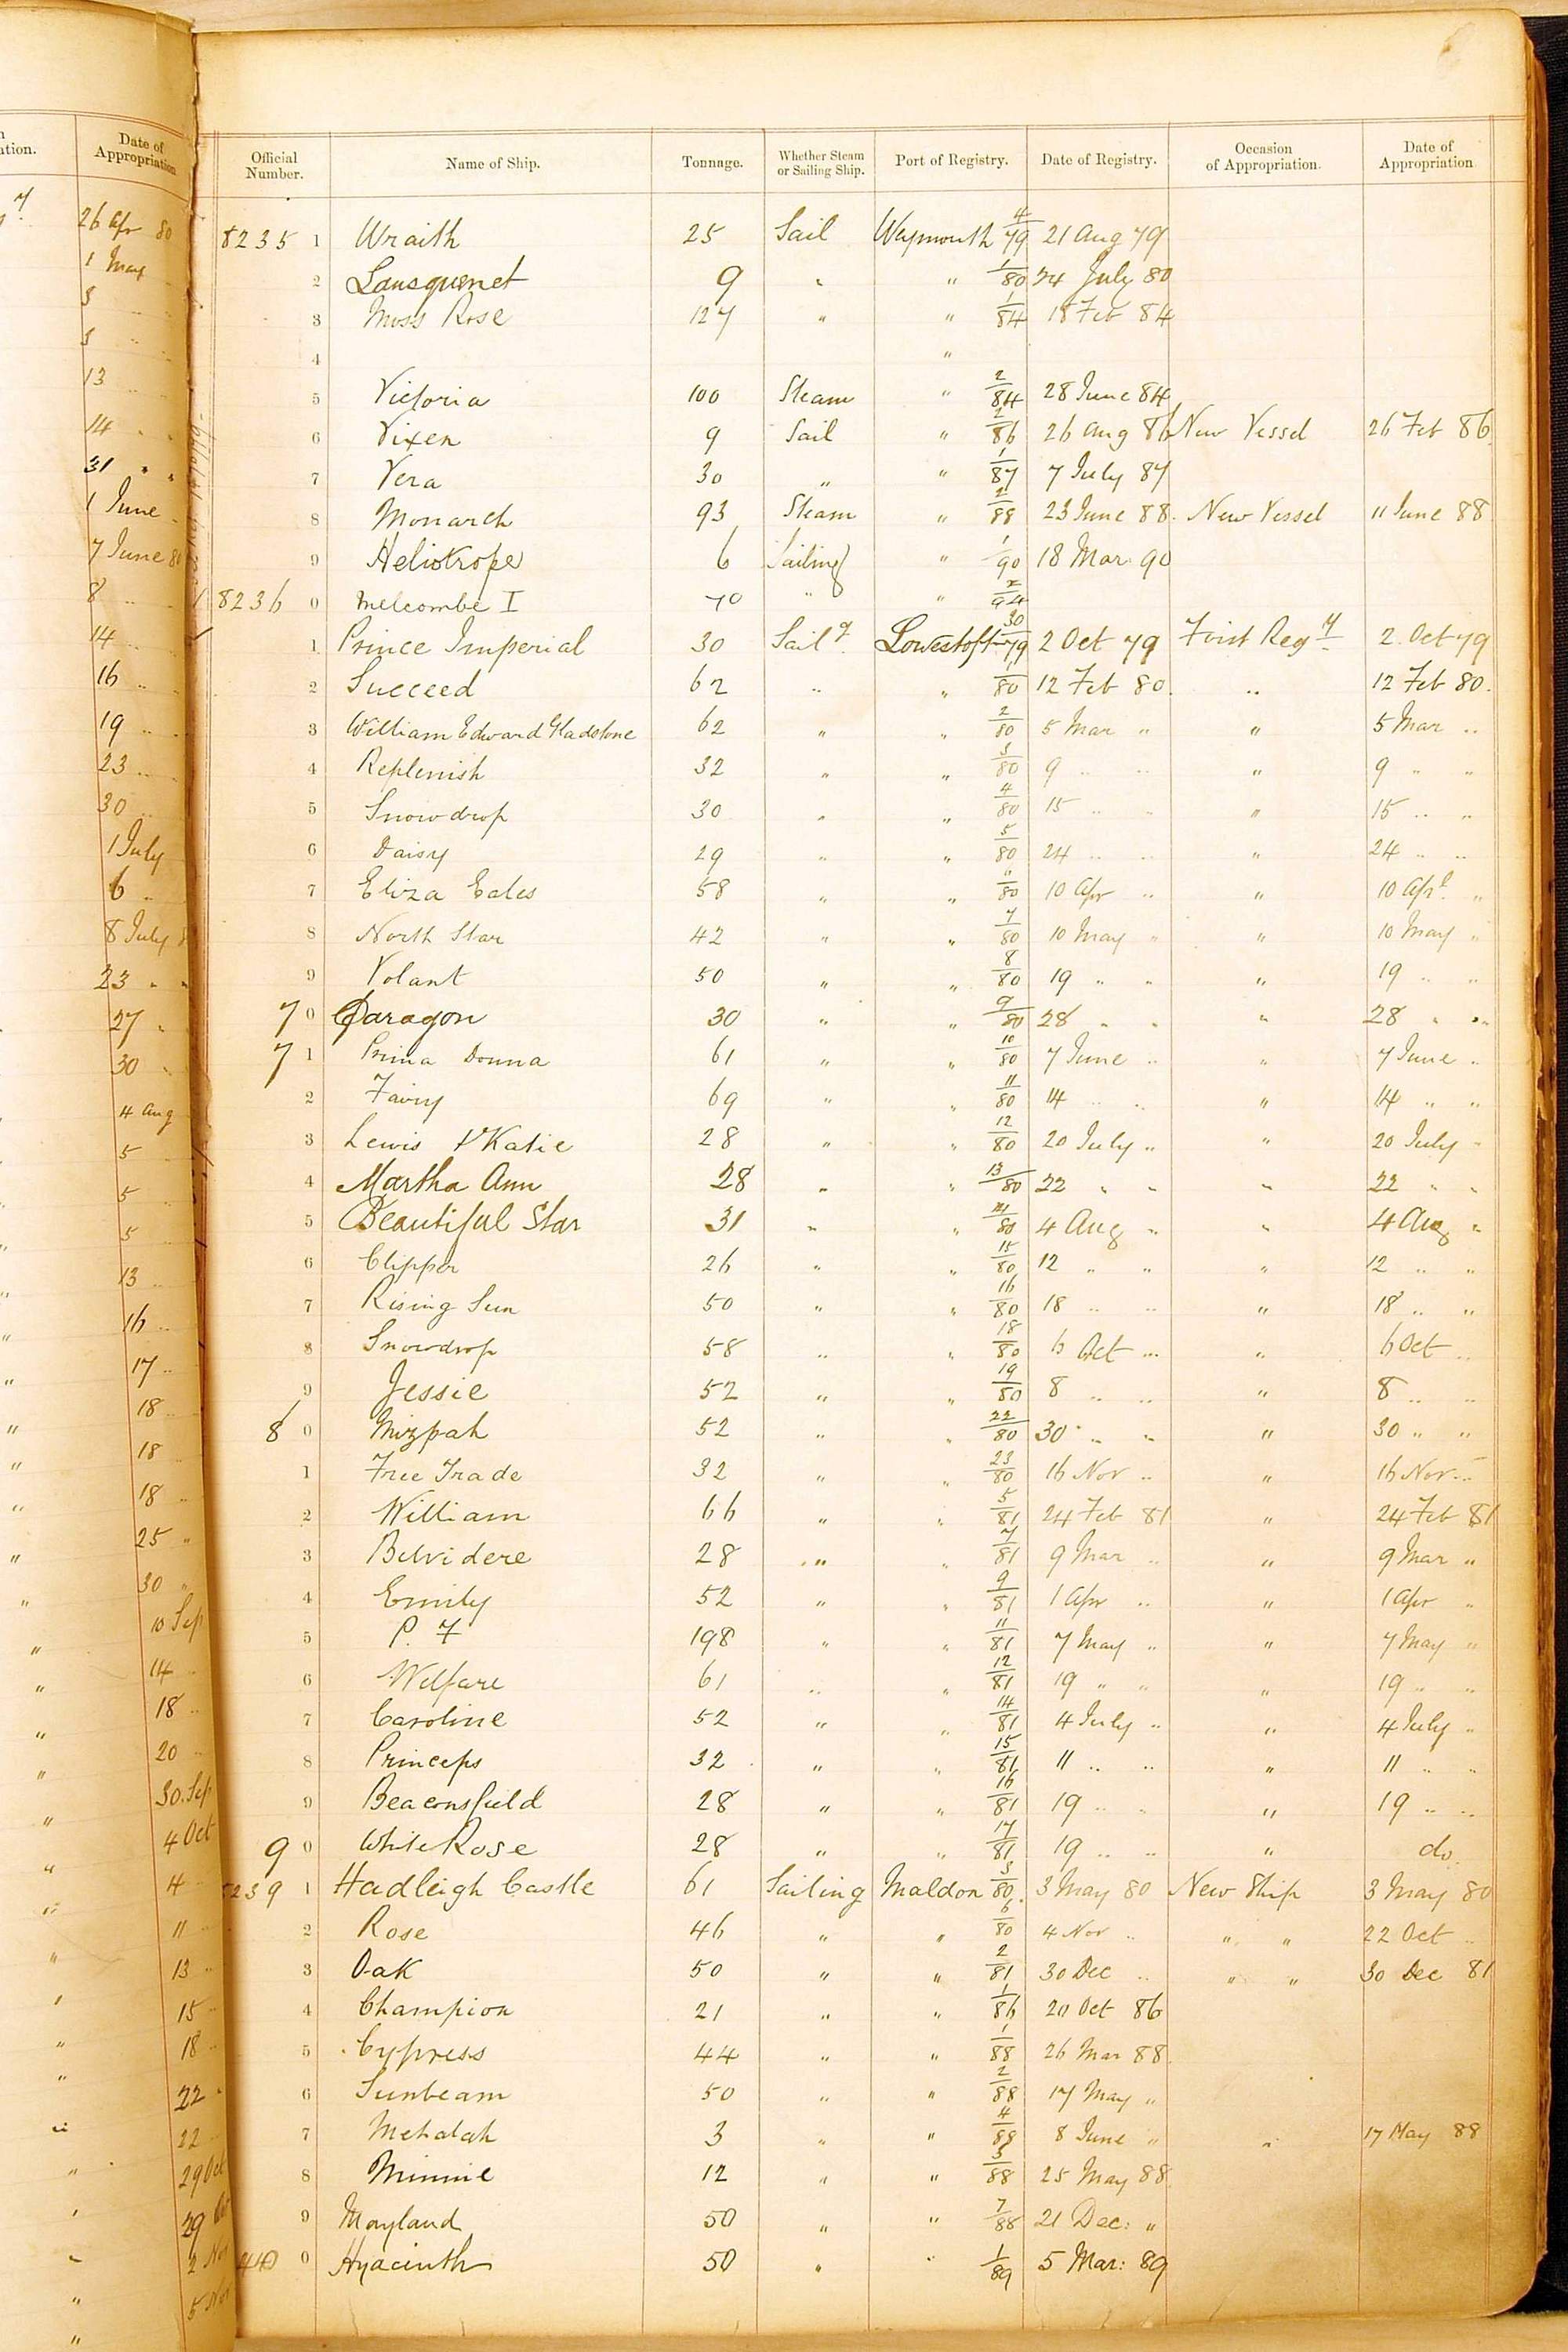 Date of
Appropriation
26 Apr 80
1 May
13
14
31 " "
1 June
7 June 80
8
14
16
19
23
30
1 July
6
8 July
23 " "
27 "
30
4 Aug
5
5
5
13
16
17
18
18
18
25
30
10 Sep
14
18
20
30 Sep
4 Oct
4
11
13
15
18
22
22
29 Oct
29
2 Nov
5 Nov
Official Number. Name of Ship. Tonnage. Whether Steam or Sailing Ship. Port of Registry. Date of Registry. Occasion of Appropriation. Date of Appropriation
8235 1 Wraith 25 Sail Weymouth 4/79 21 Aug 79
2 Lansquenet 9 " " 1/80 24 July 80
3 Moss Rose 127 " " 1/84 18 Feb 84
4 "
5 Victoria 100 Steam " 2/84 28 June 84
6 Vixen 9 Sail " 2/86 26 Aug 86 New Vessel 26 Feb 86
7 Vera 30 " " 1/87 7 July 87
8 Monarch 93 Steam " 2/88 23 June 88. New Vessel 11 June 88
9 Heliotrope 6 Sailing " 1/90 18 Mar 90
8236 0 Melcombe I 70 " " 2/94
1 Prince Imperial 30 Sailg. Lowestoft 30/79 2 Oct 79 First Regy 2. Oct 79
2 Succeed 62 " " 1/80 12 Feb 80. " 12 Feb 80.
3 William Edward Gladstone 62 " " 2/80 5 Mar " " 5 Mar "
4 Replenish 32 " " 3/80 9 " " " 9 " "
5 Snowdrop 30 " " 4/80 15 " " " 15 " "
6 Daisy 29 " " 5/80 24 " " " 24 " "
7 Eliza Eales 58 " " 6/80 10 Apr " " 10 Apl. "
8 North Star 42 " " 7/80 10 May " " 10 May "
9 Volant 50 " " 8/80 19 " " " 19 " "
7 0 Paragon 30 " " 9/80 28 " " " 28 " "
7 1 Prima Donna 61 " " 10/80 7 June " " 7 June "
2 Fairy 69 " " 11/80 14 " " " 14 " "
3 Lewis & Katie 28 " " 12/80 20 July " " 20 July "
4 Martha Ann 28 " " 13/80 22 " " " 22 " "
5 Beautiful Star 31 " " 14/80 4 Aug " " 4 Aug "
6 Clipper 26 " " 15/80 12 " " " 12 " "
7 Rising Sun 50 " " 16/80 18 " " " 18 " "
8 Snowdrop 58 " " 18/80 6 Oct " " 6 Oct "
9 Jessie 52 " " 19/80 8 " " " 8 " "
8 0 Mizpah 52 " " 22/80 30 " " " 30 " "
1 Free Trade 32 " " 23/80 16 Nov " " 16 Nov "
2 William 66 " " 5/81 24 Feb 81 " 24 Feb 81
3 Belvidere 28 " " 7/81 9 Mar " " 9 Mar "
4 Emily 52 " " 9/81 1 Apr " " 1 Apr "
5 P. 7 198 " " 11/81 7 May " " 7 May "
6 Welfare 61 " " 12/81 19 " " " 19 " "
7 Caroline 52 " " 14/81 4 July " " 4 July "
8 Princeps 32 " " 15/81 11 " " " 11 " "
9 Beaconsfield 28 " " 16/81 19 " " " 19 " "
9 0 White Rose 28 " " 17/81 19 " " " do.
8239 1 Hadleigh Castle 61 Sailing Maldon 3/80. 3 May 80 New Ship 3 May 80
2 Rose 46 " " 6/80 4 Nov " " " 22 Oct "
3 Oak 50 " " 2/81 30 Dec " " " 30 Dec 81
4 Champion 21 " " 1/86 20 Oct 86
5 Cypress 44 " " 1/88 26 Mar 88.
6 Sunbeam 50 " " 2/88 17 May "
7 Mehalah 3 " " 4/88 8 June " " 17 May 88
8 Minnie 12 " " 3/88 25 May 88
9 Mayland 50 " " 7/88 21 Dec: "
40 0 Hyacinth 50 " " 1/89 5 Mar: 89